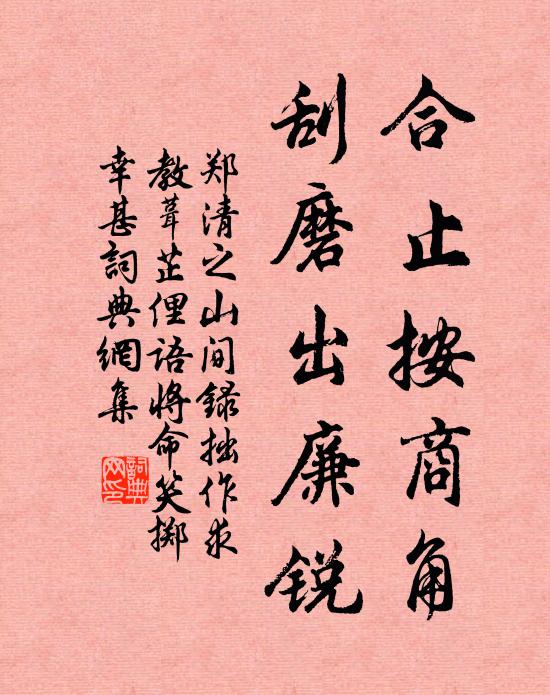 合止按商角
刮磨出廉锐
郑清之山间録拙作求
教葺芷俚语将命笑掷
幸甚詞典網集
詞典
网印